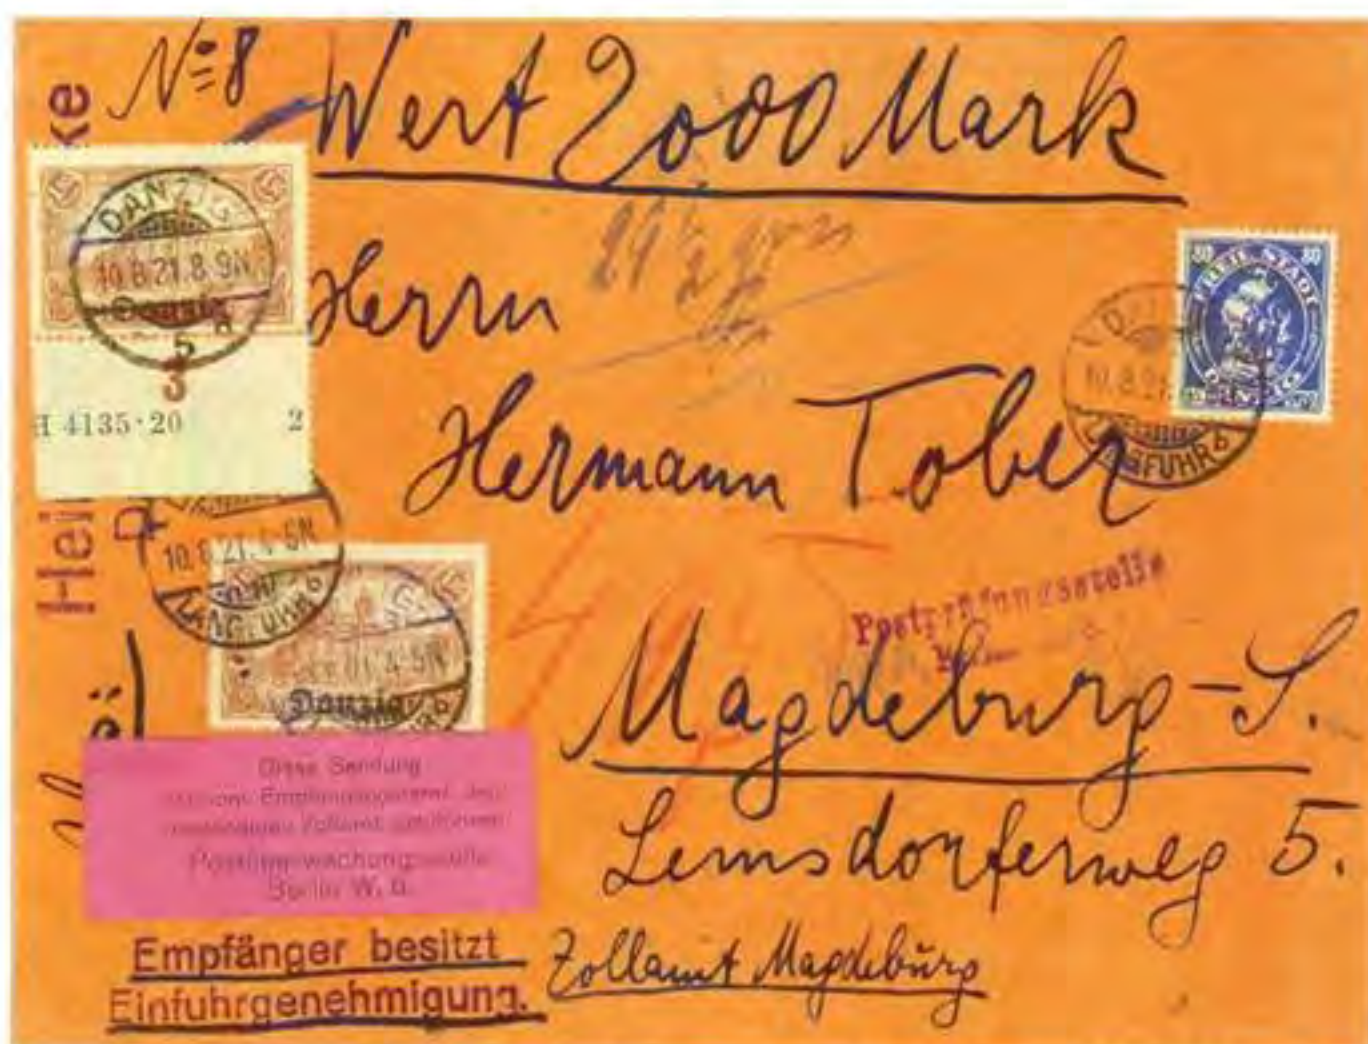 No 8 Wert 2000 Mark
DANZIG
10.8.21.8-9N
Danzig
5
3
H 4135·20 2
Herrn
Hermann Tober
80 80
FREIE STADT
DANZIG
10.8.21
LANGFUHR
10.8.21.4-5N
LANGFUHR
Danzig
Postprüfungsstelle
Magdeburg-S.
Lemsdorferweg 5.
Diese Sendung
Empfangspostamt
Zollamt
Postüberwachungsstelle
Berlin W. 8.
Empfänger besitzt
Einfuhrgenehmigung.
Zollamt Magdeburg